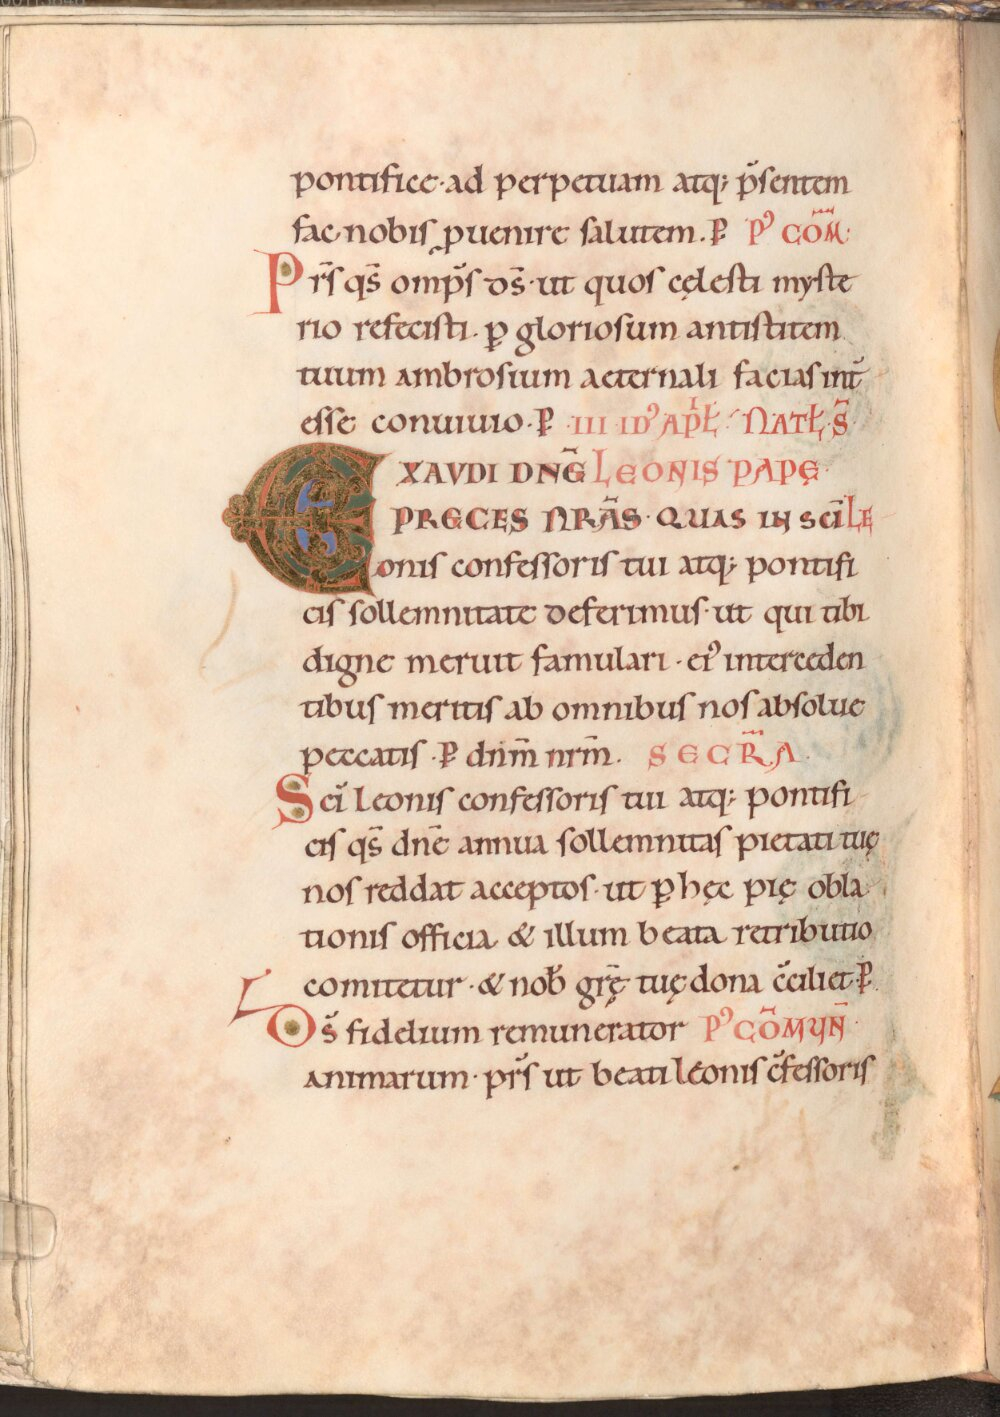 pontifice· ad perpetuam atq; p̄sentem
fac nobis ꝓuenire salutem. P̄ P᾽ COM̄:
Pr̄s qs̄ omp̄s ds̄· ut quos cęlesti myste
rio refecisti. ꝑ gloriosum antistitem
tuum ambrosium aeternali facias int̄
esse conuiuio. P̄ III ID᾽ APL̄ NATŁ S̄
EXAVDI DN̄E LEONIS PAPĘ
PRECES NR̄AS· QUAS IN SC̄I LE
onis confessoris tui atq; pontifi
cis sollemnitate deferimus· ut qui tibi
digne meruit famulari· ei᾽ interceden
tibus meritis ab omnibus nos absolue
peccatis. P̄ dn̄m nr̄m. SECR̄A
Sc̄i Leonis confessoris tui atq; pontifi
cis qs̄ dn̄e annua sollemnitas pietati tuę
nos reddat acceptos· ut ꝑ hęc pię obla
tionis officia & illum beata retributio
comitetur· & nob̄ gr̄ę tuę dona c̄ciliet. P̄
Ds̄ fidelium remunerator P᾽ COM̄UN̄
animarum· pr̄s ut beati leonis c̄fessoris